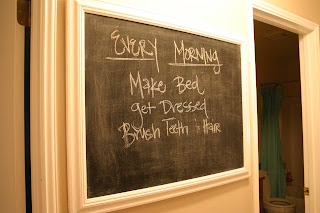 Every Morning
Make Bed
get Dressed
Brush Teeth & Hair